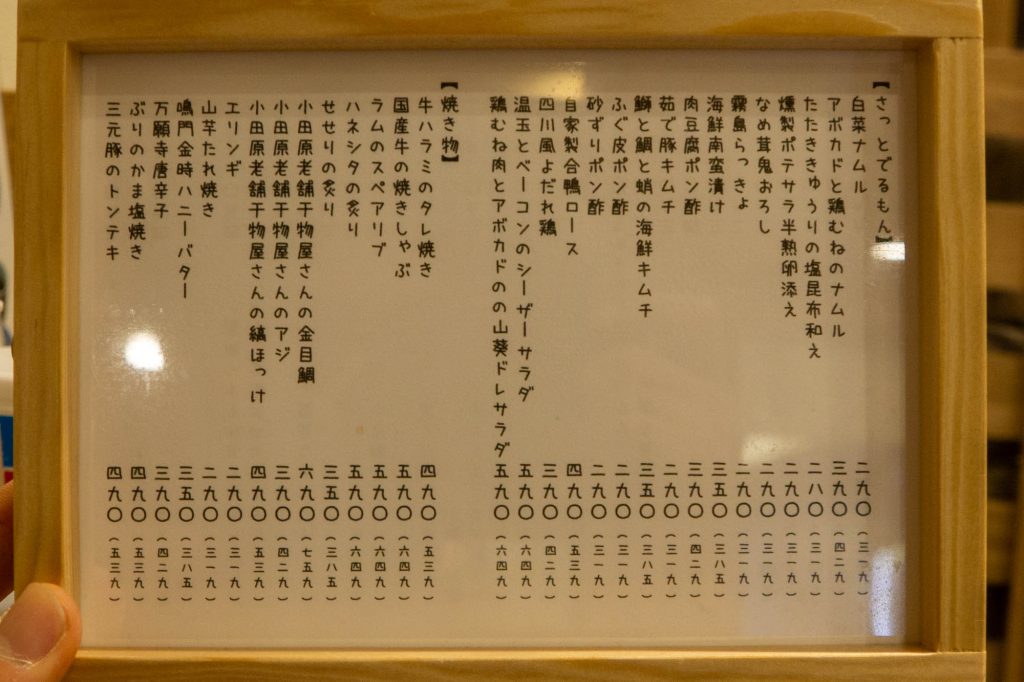 【さっとでるもん】
白菜ナムル 二九〇（三一九）
アボカドと鶏むねのナムル 三九〇（四二九）
たたききゅうりの塩昆布和え 二八〇（三一九）
燻製ポテサラ半熟卵添え 二九〇（三一九）
なめ茸鬼おろし 二九〇（三一九）
霧島らっきょ 二九〇（三一九）
海鮮南蛮漬け 三五〇（三八五）
肉豆腐ポン酢 三九〇（四二九）
茹で豚キムチ 二九〇（三一九）
鰤と鯛と蛸の海鮮キムチ 三五〇（三八五）
ふぐ皮ポン酢 二九〇（三一九）
砂ずりポン酢 二九〇（三一九）
自家製合鴨ロース 四九〇（五三九）
四川風よだれ鶏 三九〇（四二九）
温玉とベーコンのシーザーサラダ 五九〇（六四九）
鶏むね肉とアボカドのの山葵ドレサラダ 五九〇（六四九）
【焼き物】
牛ハラミのタレ焼き 四九〇（五三九）
国産牛の焼きしゃぶ 五九〇（六四九）
ラムのスペアリブ 五九〇（六四九）
ハネシタの炙り 五九〇（六四九）
せせりの炙り 三五〇（三八五）
小田原老舗干物屋さんの金目鯛 六九〇（七五九）
小田原老舗干物屋さんのアジ 三九〇（四二九）
小田原老舗干物屋さんの縞ほっけ 四九〇（五三九）
エリンギ 二九〇（三一九）
山芋たれ焼き 二九〇（三一九）
鳴門金時ハニーバター 三五〇（三八五）
万願寺唐辛子 三九〇（四二九）
ぶりのかま塩焼き 四九〇（五三九）
三元豚のトンテキ 四九〇（五三九）